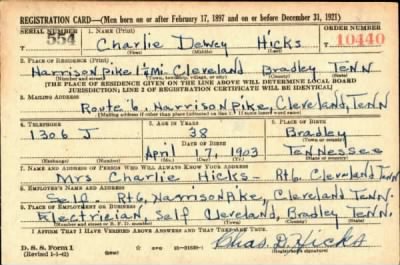 REGISTRATION CARD—(Men born on or after February 17, 1897 and on or before December 31, 1921)
SERIAL NUMBER 1. NAME (Print) ORDER NUMBER
T 554 Charlie Dewey Hicks T 10440
2. PLACE OF RESIDENCE (Print)
Harrison Pike 1 Mi Cleveland Bradley Tenn
[THE PLACE OF RESIDENCE GIVEN ON THE LINE ABOVE WILL DETERMINE LOCAL BOARD
JURISDICTION; LINE 2 OF REGISTRATION CERTIFICATE WILL BE IDENTICAL]
3. MAILING ADDRESS
Route 6, Harrison Pike, Cleveland, Tenn
[Mailing address if other than place indicated on line 2. If same insert word same]
4. TELEPHONE 5. AGE IN YEARS 6. PLACE OF BIRTH
1306 J 38 Bradley
DATE OF BIRTH (Town or county)
April 17, 1903 Tennessee
(Exchange) (Number) (Mo.) (Day) (Yr.) (State or country)
7. NAME AND ADDRESS OF PERSON WHO WILL ALWAYS KNOW YOUR ADDRESS
Mrs Charlie Hicks - Rt6. Cleveland Tenn
8. EMPLOYER'S NAME AND ADDRESS
Self - Rt6, Harrison Pike, Cleveland Tenn.
9. PLACE OF EMPLOYMENT OR BUSINESS
Electrician, Self Cleveland, Bradley Tenn.
I AFFIRM THAT I HAVE VERIFIED ABOVE ANSWERS AND THAT THEY ARE TRUE.
D. S. S. Form 1
(Revised 1-1-42) Chas. D. Hicks
(Registrant's signature)